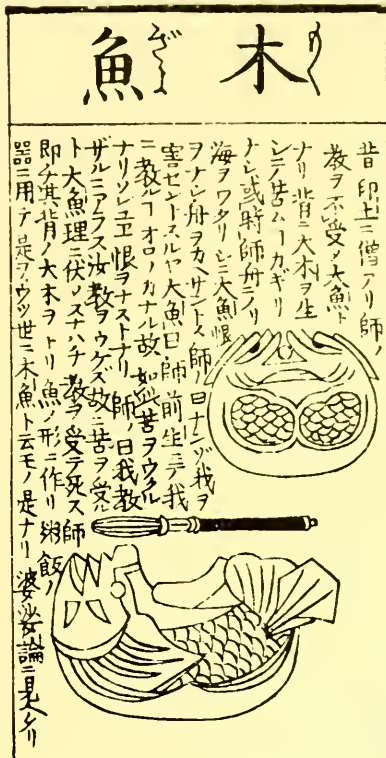 木魚
もくぎよ
昔印土ニ僧アリ師ノ
教ヲ不受〆大魚ト
ナリ背ニ大木ヲ生
シテ苦ムヿカギリ
ナシ或時師舟ニノリ
海ヲワタリシニ大魚恨
ヲナシ舟ヲカヘサントス師ノ曰ナンゾ我ヲ
害セントスルヤ大魚曰師前生ニテ我
ニ教ルヿオロソカナル故如此苦ヲウクル
ナリソレユヱ恨ヲナストナリ師ノ曰我教
ザルニアラス汝教ヲウケズ故ニ苦ヲ受ル
ト大魚理ニ伏〆スナハチ教ヲ受テ死ス師
即チ其背ノ大木ヲトリ魚ノ形ニ作リ粥飯ノ
器ニ用テ是ヲウツ世ニ木魚ト云モノ是ナリ婆沙論ニ見ヘタリ